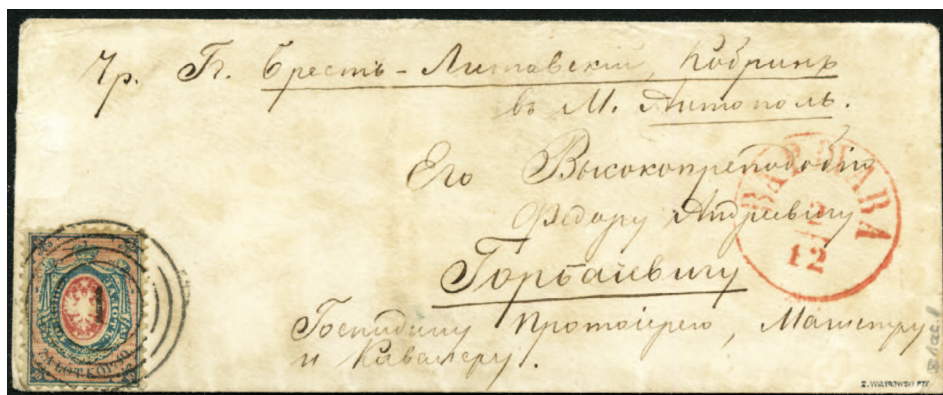 Чр. Гг. Брестъ-Литовскій, Кобринъ
въ М. Антополь.
Его Высокопреподобію
Федору Андреевичу
Горбацевичу
Господину Протоіерею, Магистру
и Кавалеру.
ВАРШАВА
2
12
ЗА ЛОТЪ
1